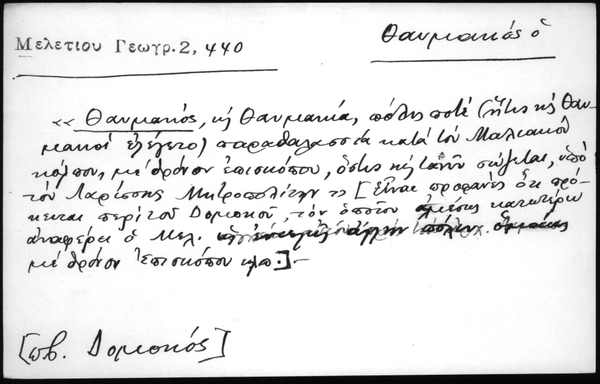 Μελετιου Γεωγρ. 2, 440
Θαυμακός ὁ
« Θαυμακός, κὴ Θαυμακία, πόλις ποτὲ (ἥτις κὴ Θαυ-
μακοὶ ἐλέγετο) παραθαλασσία κατὰ τὸν Μαλιακὸν
κόλπον, μὲ θρόνον ἐπισκόπου, ὅστις κὴ τανῦν σώζεται, ὑπὸ
τὸν Λαρίσσης Μητροπολίτην » [Εἶναι προφανὲς ὅτι πρό-
κειται περὶ τοῦ Δομοκοῦ, τὸν ὁποῖον ἀμέσως κατωτέρω
ἀναφέρει ὁ Μελ.
μὲ θρόνον Ἐπισκόπου κλπ.].-
[πβ. Δομοκός]